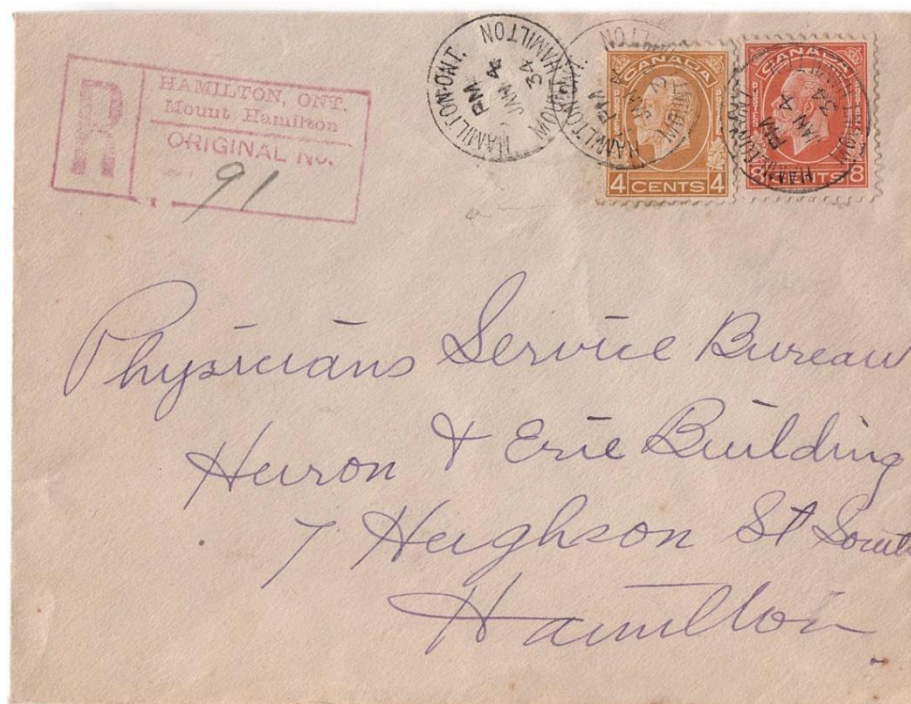 R
HAMILTON, ONT.
Mount Hamilton
ORIGINAL No.
91
HAMILTON-ONT. MOUNT HAMILTON
PM
JAN 4
34
CANADA
4 CENTS 4
CANADA
PM
JAN 4
34
8 CENTS 8
Physicians Service Bureau
Huron & Erie Building
7 Hughson St South
Hamilton